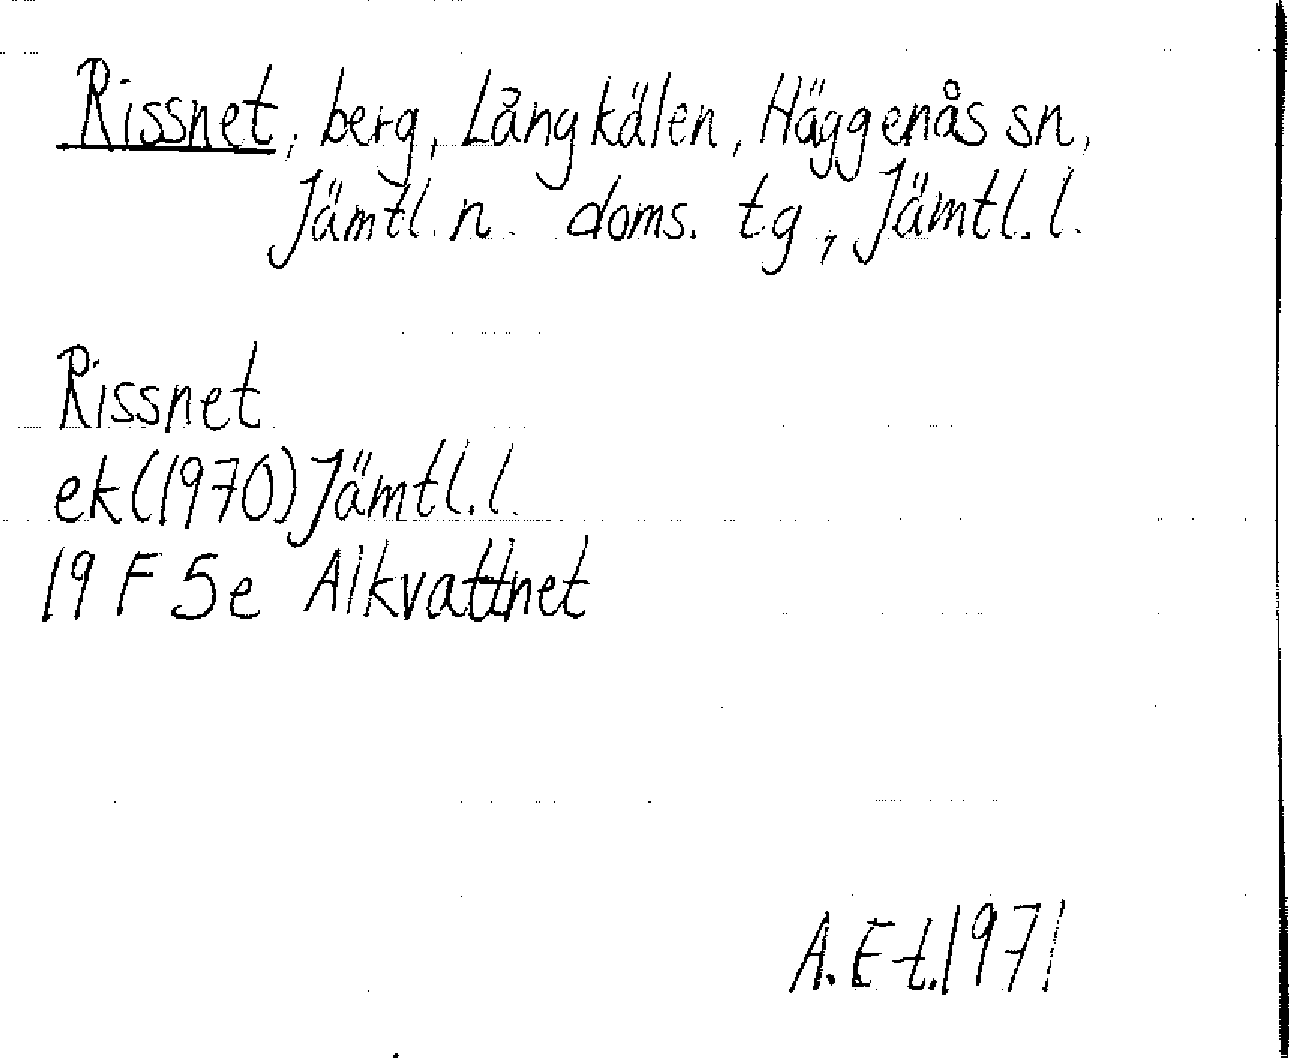 Rissnet, berg, Långkälen, Häggenås sn,
Jämtl. n. doms. tg, Jämtl. l.
Rissnet
ek (1970) Jämtl. l.
19 F 5e Alkvattnet
A. E-t. 1971